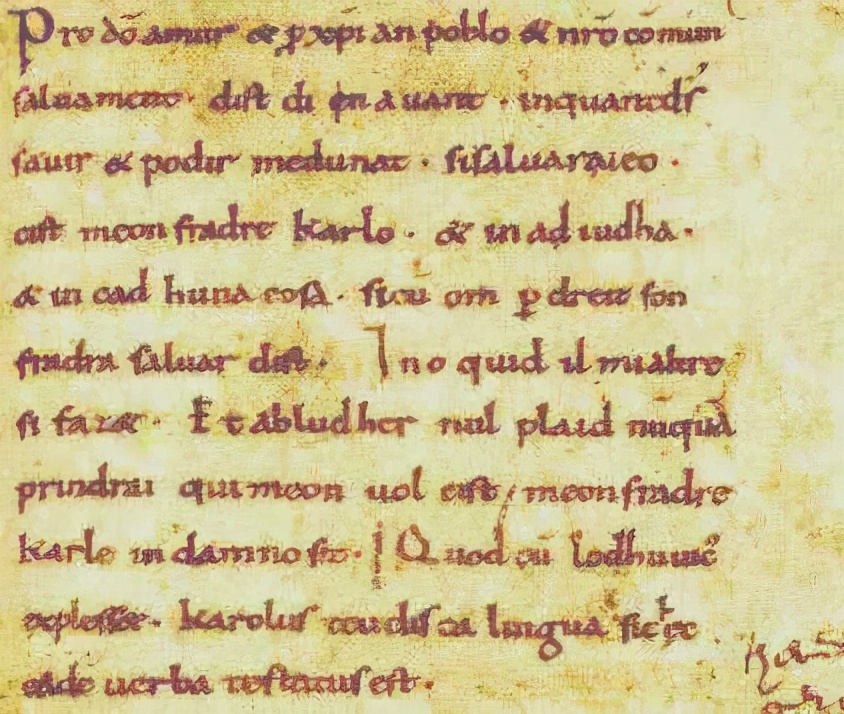 Pro dō amur & ꝑ xp̄i an poblo & nr̄o comun
saluament · dist di en auant · inquantdˢ
sauir & podir medunat · sisaluaraieo ·
cist meon fradre Karlo · & in ad iudha ·
& in cad huna cosa · sicū om ꝑ dreit son
fradra saluar dist · I n o quid il mialtre
si faz& · Et abludher nul plaid nūquā
prindrai qui meon uol cist / meonfradre
Karle in damno sit · Quod cū lodhuuic̄
explesset · Karolus teudisca lingua sic
eade uerba testatus est ·